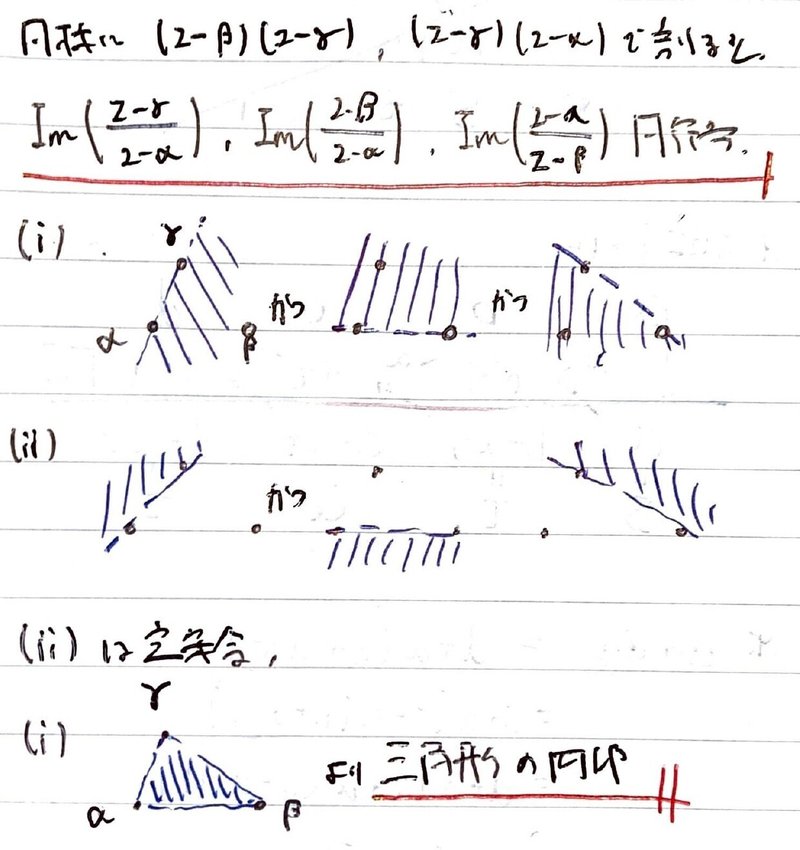 同様に (z-β)(z-γ), (z-γ)(z-α) で割ると,
Im(z-γ/z-α), Im(z-β/z-α), Im(z-α/z-β) 同符号.
(i) γ α β かつ かつ
(ii) かつ
(ii) は空集合,
(i) γ α β より 三角形の内部